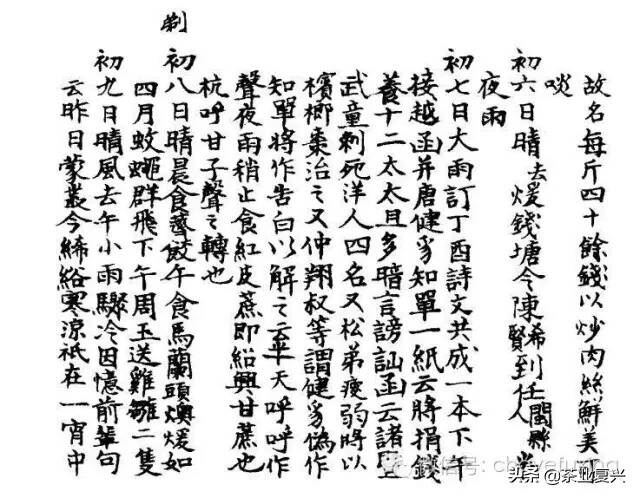 故名每斤四十餘錢以炒肉絲鮮美可
啖
初六日晴去煖錢塘令陳希賢到任閩縣人
夜雨
初七日大雨訂丁酉詩文共成一本下午
接越函并唐健爹知單一紙云將捐錢
養十二太太且多暗言謗訕函云諸暨
武童刺死洋人四名又松弟瘦弱將以
檳榔棗治之又仲翔叔等謂健爹偽作
知單將作告白以解之云半天呼呼作
聲夜雨稍止食紅皮蔗即紹興甘蔗也
杭呼甘子聲之轉也
剃
初八日晴晨食餃午食馬蘭頭燠煖如
四月蚊蠅群飛下午周玉送雞雛二隻
初九日晴風去午小雨驟冷因憶前輩句
云昨日蒙叢今絺綌寒涼祇在一宵中
微信号: chayefuxing
头条 @茶业复兴